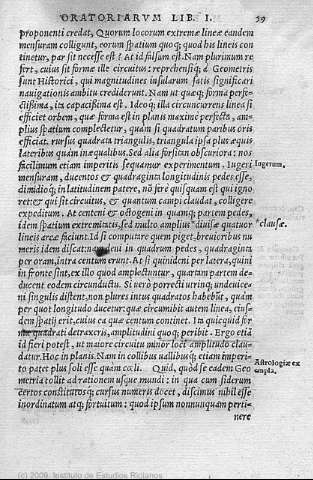 ORATORIARVM LIB. I. 59
proponenti credat, Quorum locorum extremæ lineæ eandem
mensuram colligunt, eorum spatium quoq; quod his lineis con
tinetur, par sit necesse est? At id falsum est. Nam plurimum re
fert, cuius sit formæ ille circuitus: reprehensiq; à Geometris
sunt Historici, qui magnitudinem insularum satis significari
nauigationis ambitu crediderunt. Nam ut quæq; forma perfe-
ctissima, ita capacissima est. Ideoq; illa circuncurrens linea si
efficiet orbem, quæ forma est in planis maximè perfecta, am-
plius spatium complectetur, quàm si quadratum paribus oris
efficiat. rursus quadrata triangulis, triangula ipsa plus æquis
lateribus quàm inæqualibus. Sed alia forsitan obscuriora: nos
facillimum etiam imperitis sequamur experimentum. Iugeri
Iugerum.
mensuram, ducentos & quadraginta longitudinis pedes esse,
dimidioq; in latitudinem patere, nō ferè quisquam est qui igno
ret: & qui sit circuitus, & quantum campi claudat, colligere
expeditum. At centeni & octogeni in quanq; partem pedes,
idem spatium extremitatis, sed multo amplius *diuisæ quatuor
*clausæ.
lineis areæ faciunt. Id si computare quem piget, breuioribus nu
meris idem discat. in quadrum pedes, quadraginta
per oram, intra centum erunt. At si quindeni per latera, quini
in fronte sint, ex illo quod amplectuntur, quartam partem de-
ducent eodem circunductu. Si uerò porrecti utrinq; undeuice
ni singulis distent, non plures intus quadratos habebūt, quàm
per quot longitudo ducetur: quæ circumibit autem linea, eius-
dem spatij erit, cuius ea quæ centum continet. Ita quicquid for
mæ quadrati detraxeris, amplitudini quoq; peribit. Ergo etiā
id fieri potest, ut maiore circuitu minor loci amplitudo clau-
datur. Hoc in planis. Nam in collibus uallibusq; etiam imperi-
to patet plus soli esse quàm cœli. Quid, quòd se eadem Geo
Astrologiæ ex
empla.
metria tollit ad rationem usque mundi: in qua cum siderum
certos constitutosq; cursus numeris docet, discimus nihil esse
inordinatum atq; fortuitum: quod ipsum nonnunquam perti-
nere
(c) 2009, Instituto de Estudios Riojanos